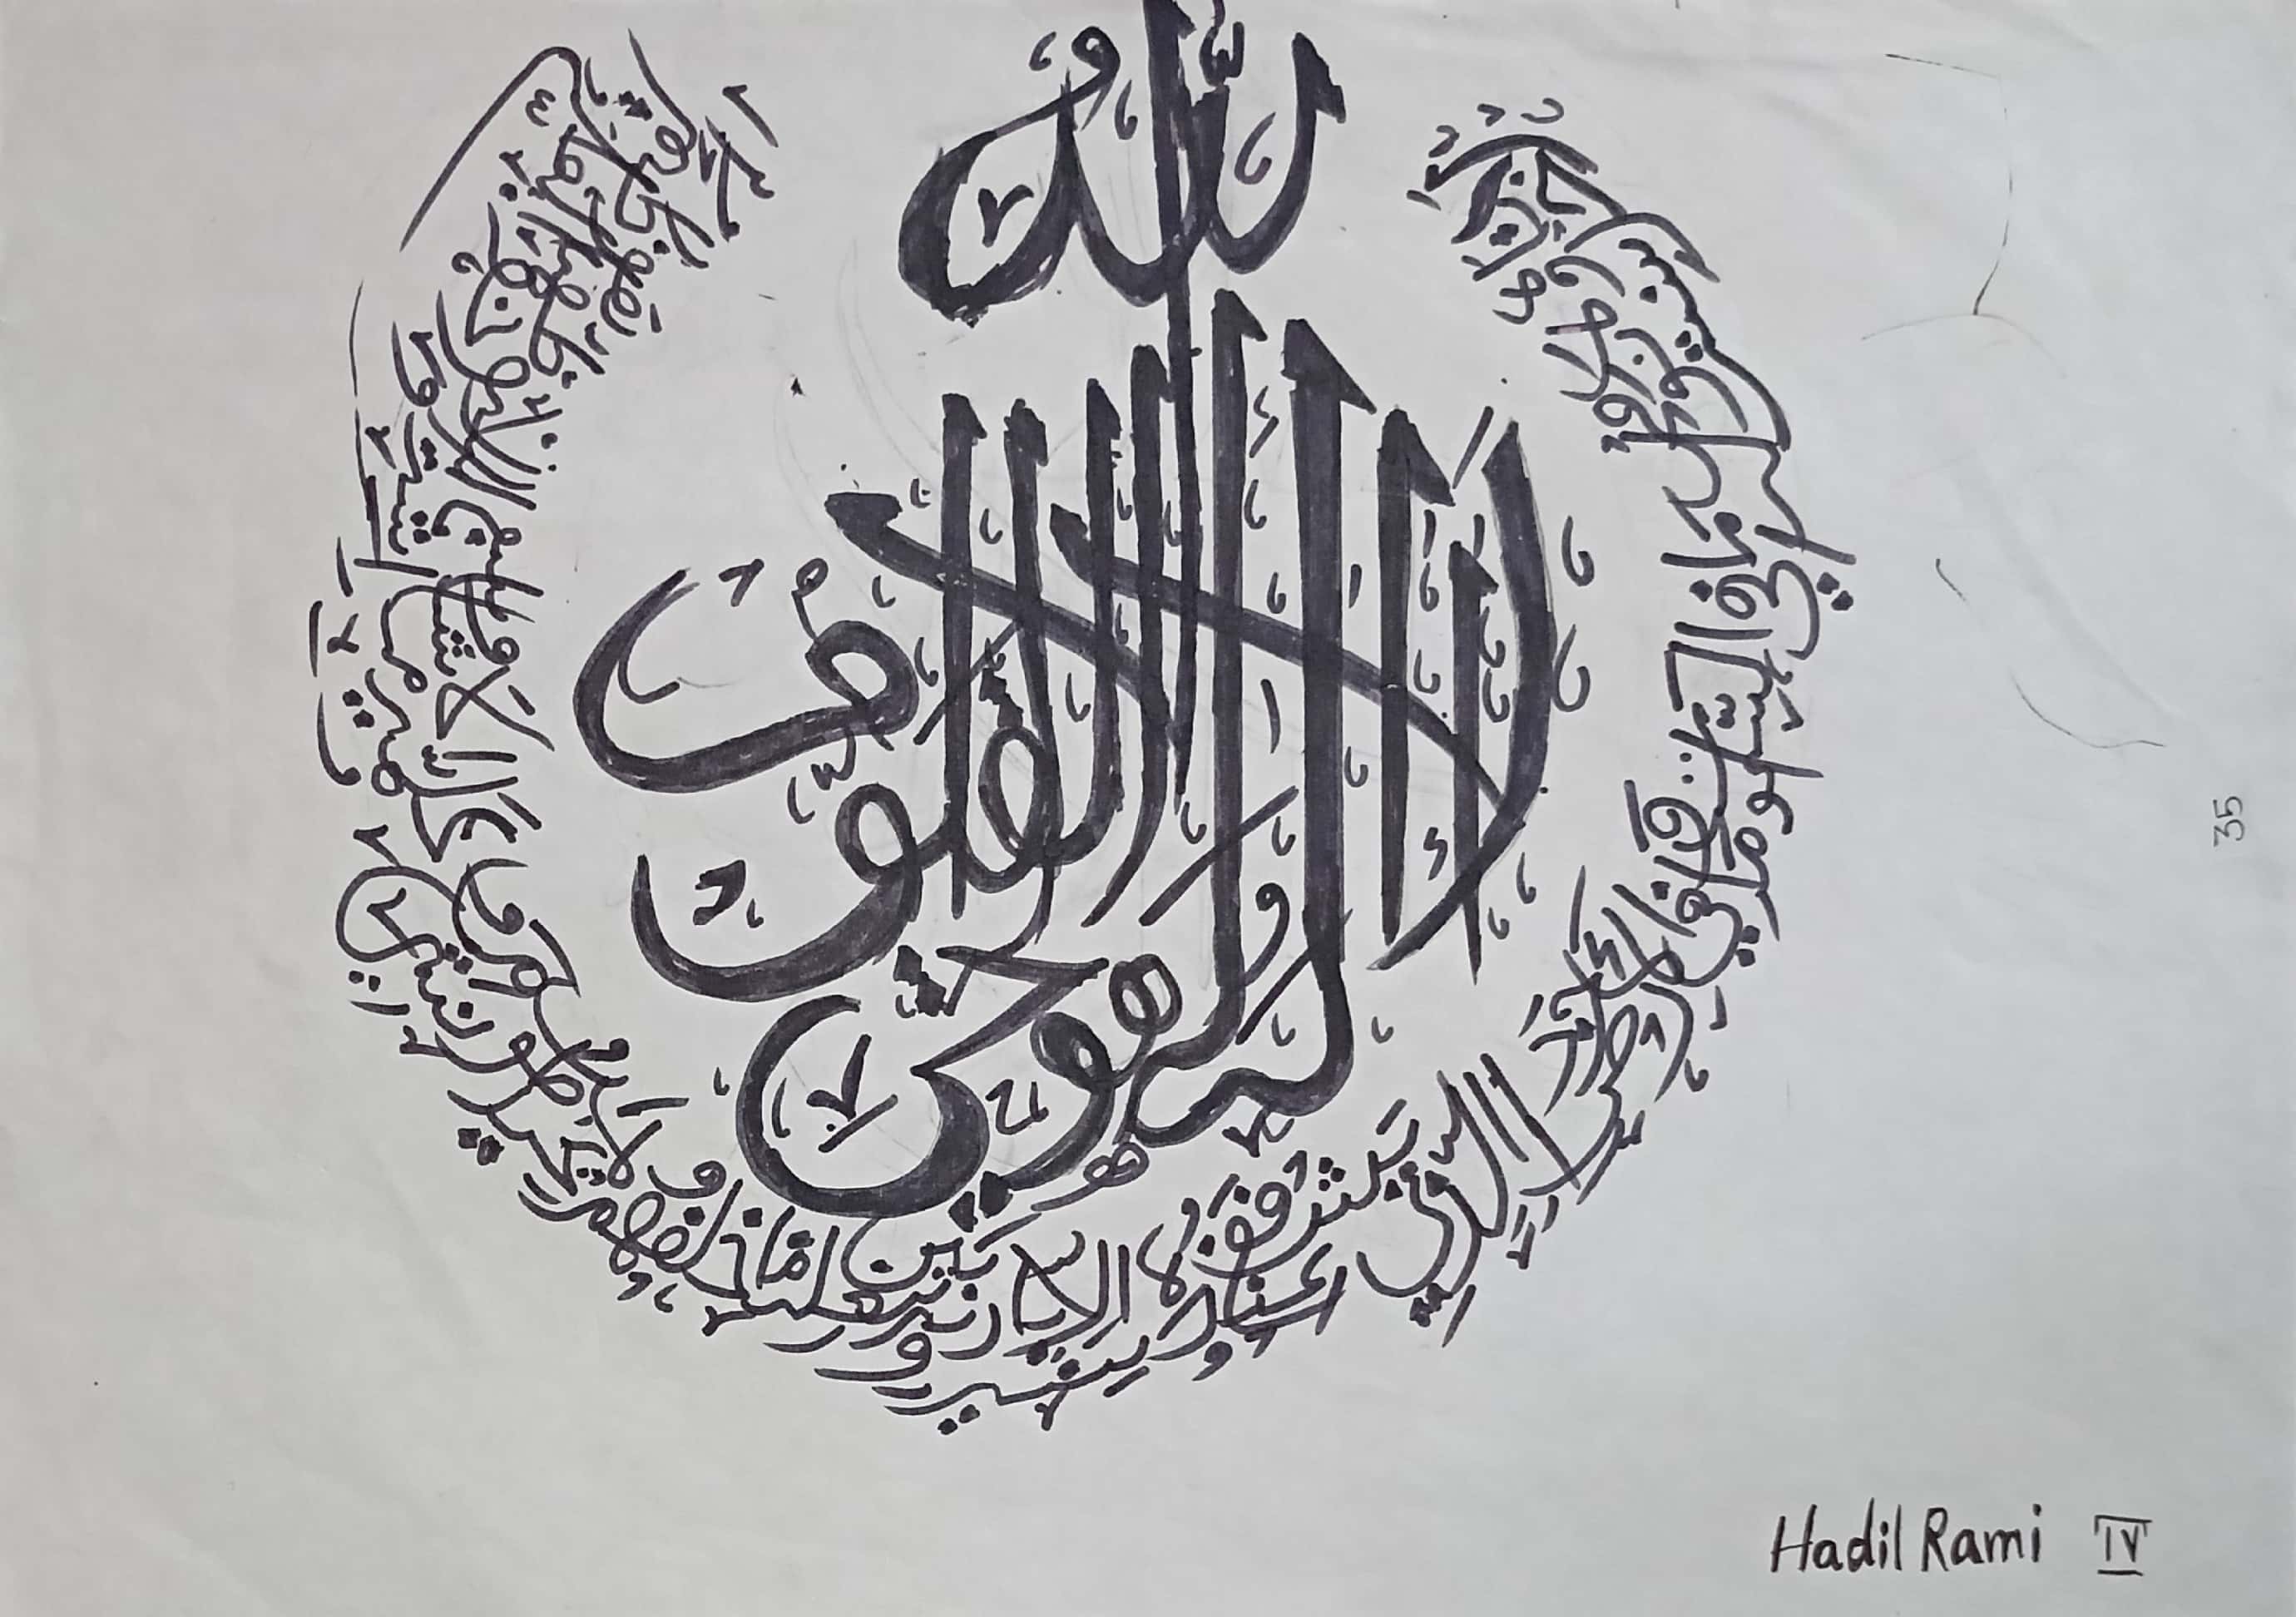 الله لا إله إلا هو الحي القيوم
لا تأخذه سنة ولا نوم له ما في السموات وما في الأرض من ذا الذي يشفع عنده إلا بإذنه يعلم ما بين أيديهم وما خلفهم ولا يحيطون بشيء من علمه إلا بما شاء وسع كرسيه السموات والأرض ولا يؤده حفظهما وهو العلي العظيم
35
Hadil Rami IV